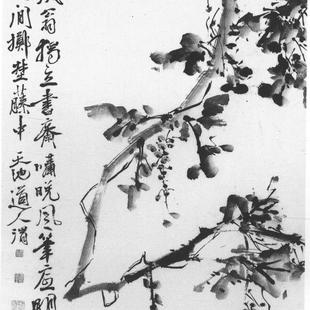 翁獨立書齋嘯晚風筆底明
間擲埜藤中 天池道人渭